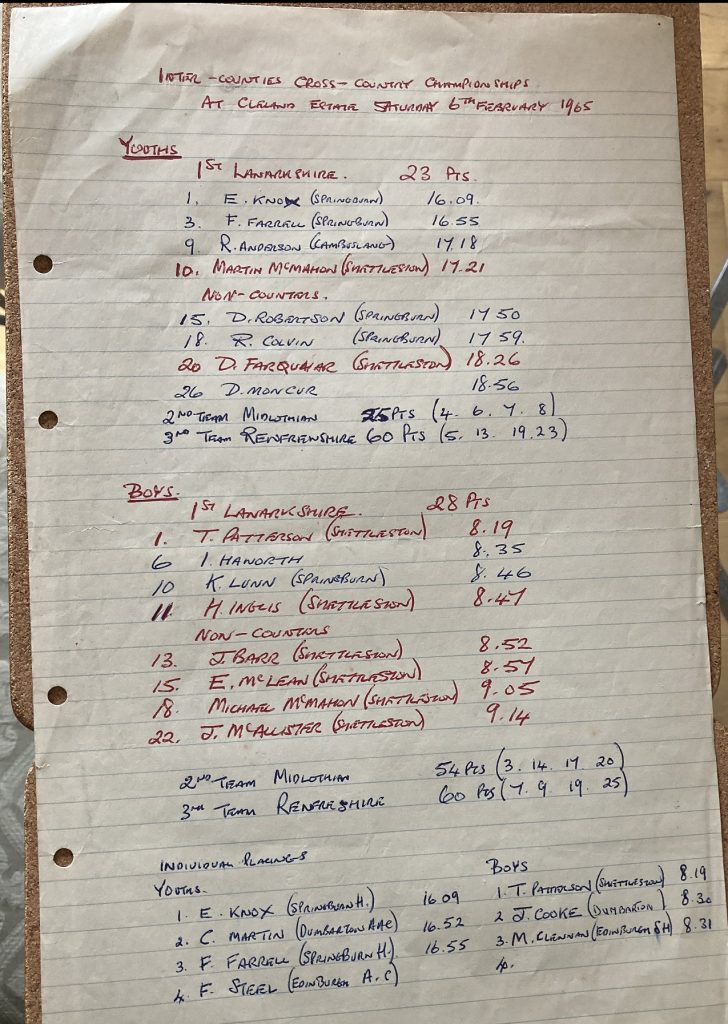 INTER-COUNTIES CROSS-COUNTRY CHAMPIONSHIPS
AT CLELAND ESTATE SATURDAY 6TH FEBRUARY 1965
YOUTHS
1ST LANARKSHIRE. 23 PTS.
1. E. KNOX (SPRINGBURN) 16.09.
3. F. FARRELL (SPRINGBURN) 16.55
9. R. ANDERSON (CAMBUSLANG) 17.18
10. MARTIN MCMAHON (SHETTLESTON) 17.21
NON-COUNTERS.
15. D. ROBERTSON (SPRINGBURN) 17 50
18. R. COLVIN (SPRINGBURN) 17 59.
20 D. FARQUHAR (SHETTLESTON) 18.26
26 D. MONCUR 18.56
2ND TEAM MIDLOTHIAN 25 PTS (4. 6. 7. 8)
3RD TEAM RENFREWSHIRE 60 PTS (5. 13. 19. 23)
BOYS.
1ST LANARKSHIRE. 28 PTS
1. T. PATTERSON (SHETTLESTON) 8.19
6 I. HAWORTH 8.35
10 K. LUNN (SPRINGBURN) 8.46
11 H. INGLIS (SHETTLESTON) 8.47
NON-COUNTERS
13. J. BARR (SHETTLESTON) 8.52
15. E. MCLEAN (SHETTLESTON) 8.57
18. MICHAEL MCMAHON (SHETTLESTON) 9.05
22. J. MCALLISTER (SHETTLESTON) 9.14
2ND TEAM MIDLOTHIAN 54 PTS (3. 14. 17. 20)
3RD TEAM RENFRESHIRE 60 PTS (7. 9. 19. 25)
INDIVIDUAL PLACINGS
YOUTHS.
1. E. KNOX (SPRINGBURN H.) 16.09
2. C. MARTIN (DUMBARTON AAC) 16.52
3. F. FARRELL (SPRINGBURN H.) 16.55
4. F. STEEL (EDINBURGH A.C)
BOYS
1. T. PATTERSON (SHETTLESTON) 8.19
2 J. COOKE (DUMBARTON) 8.30
3. M. CLENNAN (EDINBURGH SH) 8.31
4.